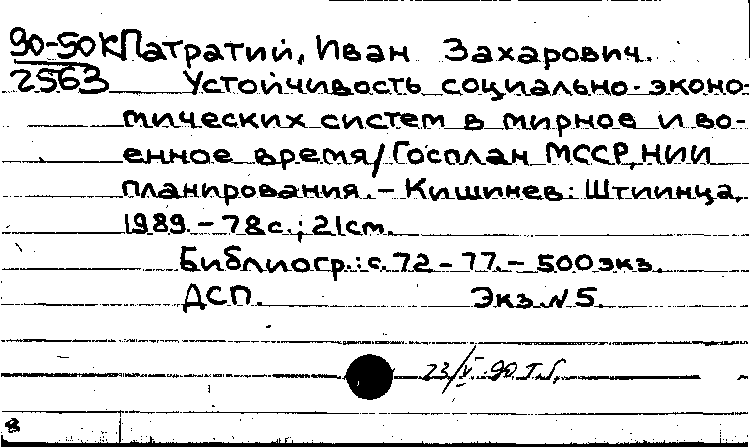 90-50К Патратий, Иван Захарович.
2563 Устойчивость социально-эконо-
мических систем в мирное и во-
енное время/Госплан МССР, НИИ
планирования. – Кишинев: Штиинца,
1989. – 78с.; 21см.
Библиогр.: с. 72 – 77. – 500 экз.
ДСП. Экз. N 5.
23/V-90 Т.Б.
8